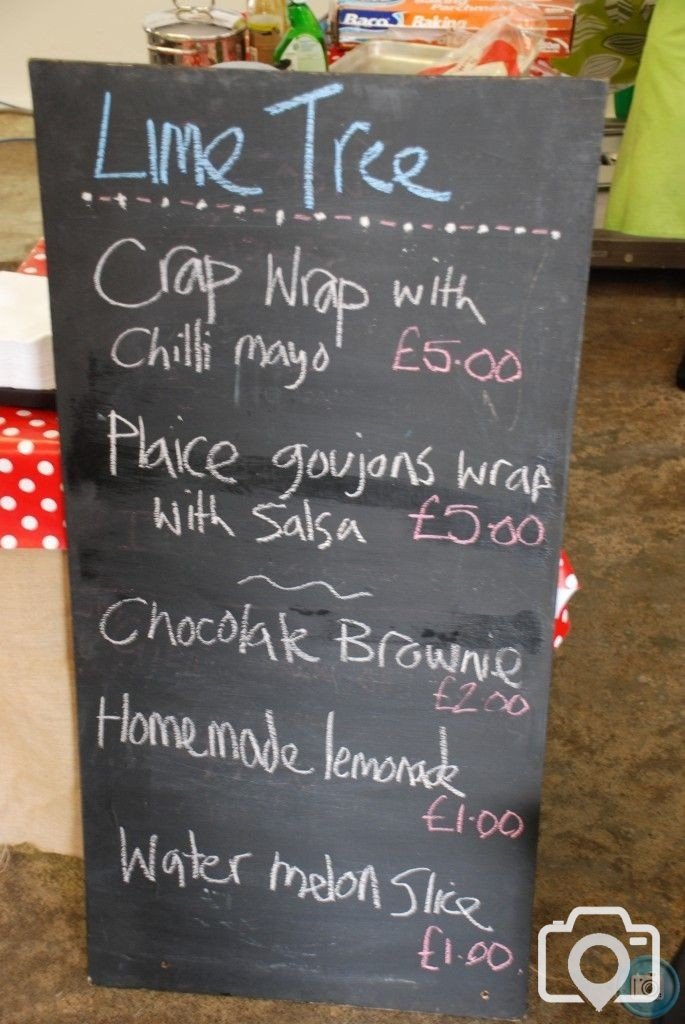 Baking
Parchment
Baco
Baking
Lime Tree
Crap Wrap with
Chilli mayo £5.00
Plaice goujons wrap
with Salsa £5.00
Chocolate Brownie
£2.00
Homemade lemonade
£1.00
Water melon Slice
£1.00